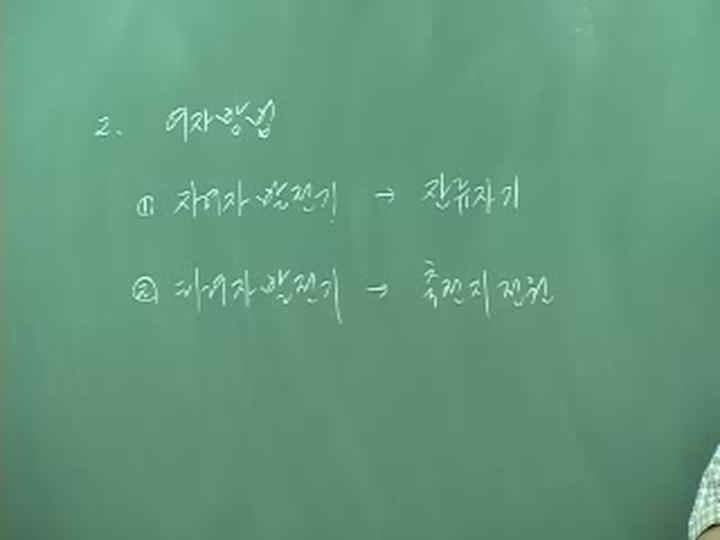 2. 여자방법
① 자여자 발전기 → 잔류자기
② 타여자 발전기 → 축전지 전원